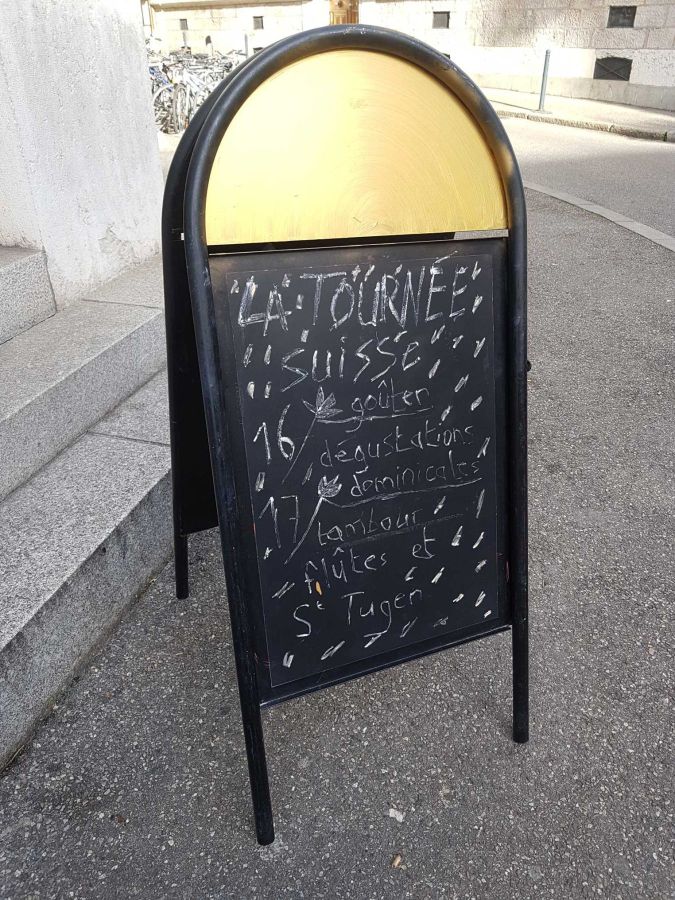 LA TOURNÉE
SUISSE
16 goûten
dégustations
17 dominicales
tambour
flûtes et
St Tugen